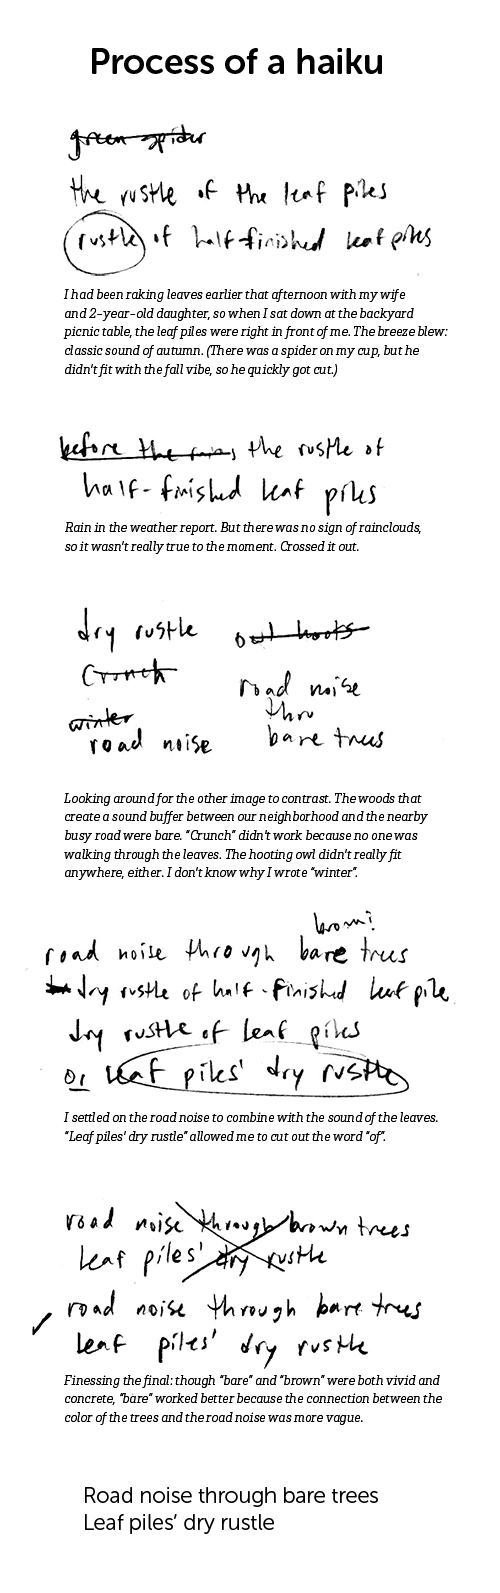 Process of a haiku
green spider
the rustle of the leaf piles
rustle of half-finished leaf piles
I had been raking leaves earlier that afternoon with my wife
and 2-year-old daughter, so when I sat down at the backyard
picnic table, the leaf piles were right in front of me. The breeze blew:
classic sound of autumn. (There was a spider on my cup, but he
didn't fit with the fall vibe, so he quickly got cut.)
before the rain, the rustle of
half-finished leaf piles
Rain in the weather report. But there was no sign of rainclouds,
so it wasn't really true to the moment. Crossed it out.
dry rustle
owl hoots
Crunch
road noise
thru
bare trees
winter
road noise
Looking around for the other image to contrast. The woods that
create a sound buffer between our neighborhood and the nearby
busy road were bare. "Crunch" didn't work because no one was
walking through the leaves. The hooting owl didn't really fit
anywhere, either. I don't know why I wrote "winter".
brown?
road noise through bare trees
dry rustle of half-finished leaf pile
dry rustle of leaf piles
or leaf piles' dry rustle
I settled on the road noise to combine with the sound of the leaves.
"Leaf piles' dry rustle" allowed me to cut out the word "of".
road noise through brown trees
leaf piles' dry rustle
road noise through bare trees
leaf piles' dry rustle
Finessing the final: though "bare" and "brown" were both vivid and
concrete, "bare" worked better because the connection between the
color of the trees and the road noise was more vague.
Road noise through bare trees
Leaf piles' dry rustle